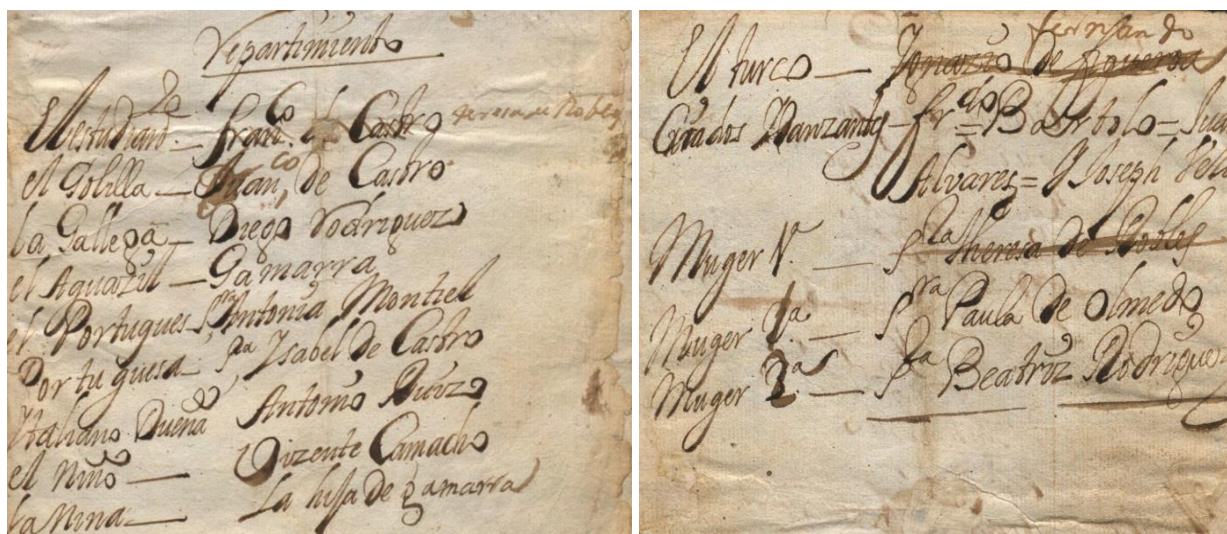 Repartimiento
El estudiante — Franco de Castro teresa de Robles
el Golilla — Juan de Castro
la Gallega — Diego Rodriguez
el Aguazil — Gamarra
el Portugues Sra Antonia Montiel
Portuguesa Sra Ysabel de Castro
Ytaliano Dueña Antonio Ruiz
el Niño — Vizente Camacho
la Nina — La hija de gamarra
fernando
El turco — Ignazio de figueroa
Criados Danzantes — frco Bartolo =
Alvares = J Joseph
Muger 1ª. — Sra theresa de Robles
Muger 1ª — Sra Paula de Olmedo
Muger 2ª — Sra Beatriz Rodrigue